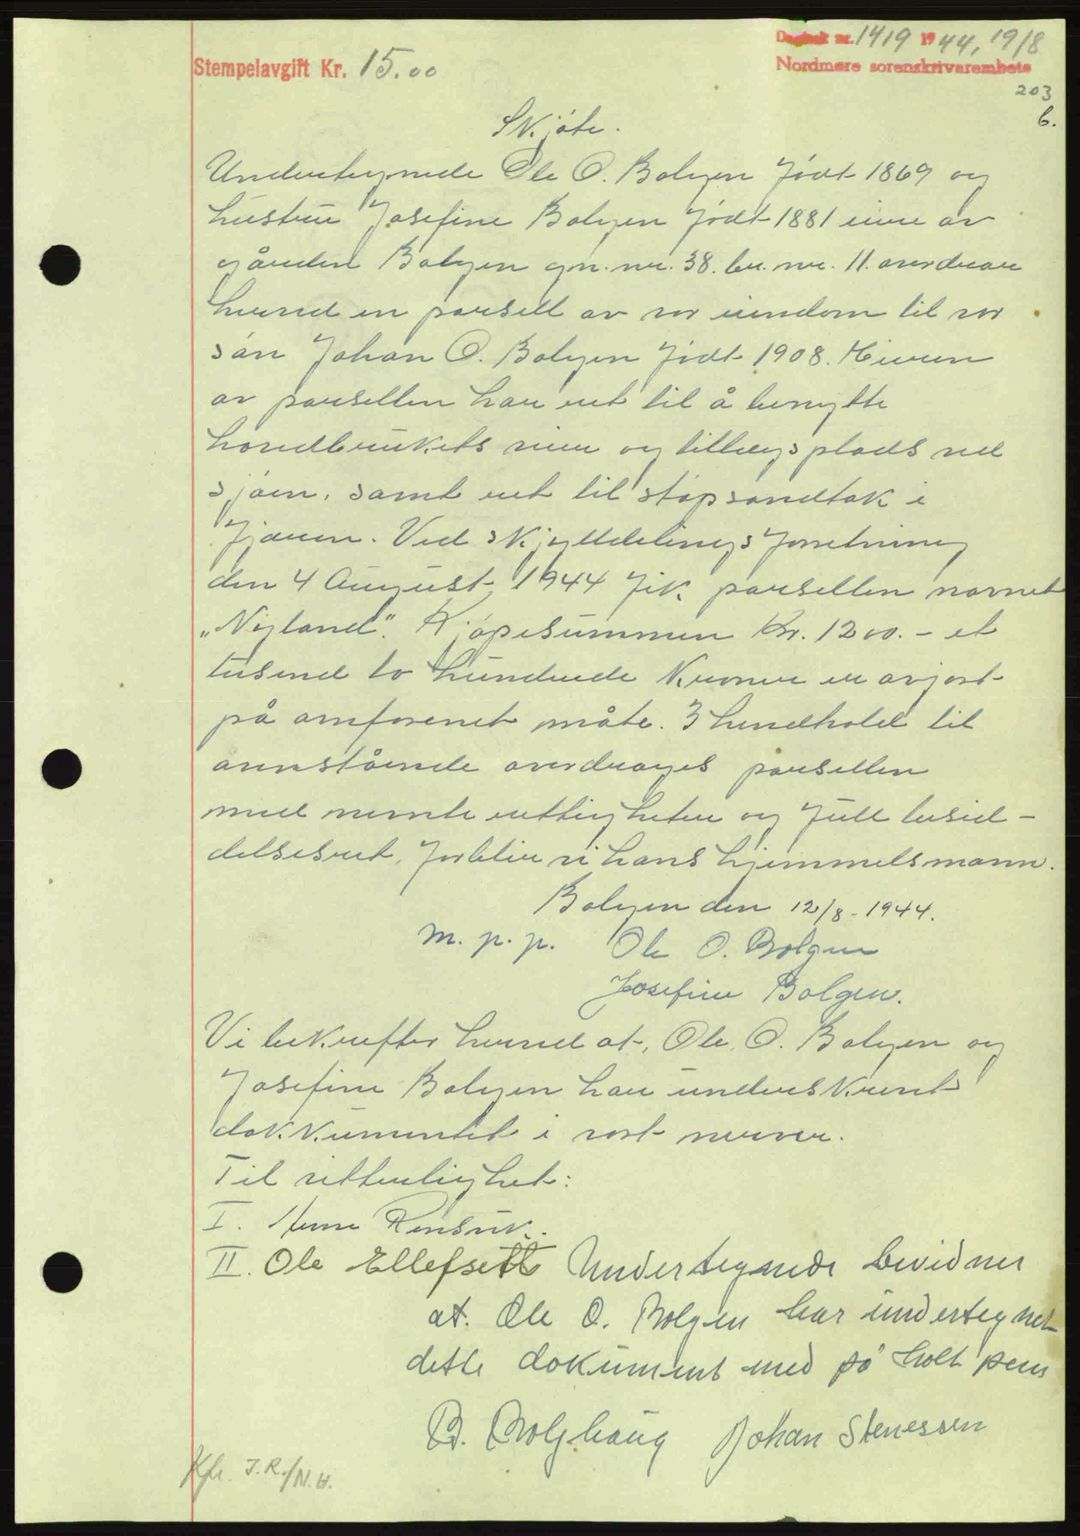 Stempelavgift Kr. 15.00
Dagbok nr. 1419 1944, 19/8
Nordmøre sorenskrivarembete
203
6.
Skjøte.
Undertegnede Ole O. Bolgen født 1869 og
hustru Josefine Bolgen født 1881 eiere av
gården Bolgen gn. nr. 38. br. nr. 11. overdrar
herved en parsell av vor eiendom til vor
søn Johan O. Bolgen født 1908. Eieren
av parsellen har ret til å benytte
hovedbrukets vei og tillegsplads ved
sjøen, samt ret til støpsandtak i
fjæren. Ved skylddelingsforretning
den 4 August 1944 fik parsellen navnet
„Nyland". Kjøpesummen Kr. 1200.- et
tusend to hundrede kroner er avgjort
på omforenet måte. I henhold til
ovenstående overdrages parsellen
med nevnte rettigheter og full besid-
delsesret, forblir vi hans hjemmelsmann.
Bolgen den 12/8-1944.
m. p. p. Ole O. Bolgen
Josefine Bolgen.
Vi bekrefter herved at, Ole O. Bolgen og
Josefine Bolgen har underskrevet
dokkumentet i vort nerver.
Til vitterlighet:
I.
II. Ole Ellefsett Undertegnede bevidner
at. Ole O. Bolgen har undertegnet
dette dokument med på holt penn
B. Bolghaug Johan Stenessen
Kfr. J.R./N.H.